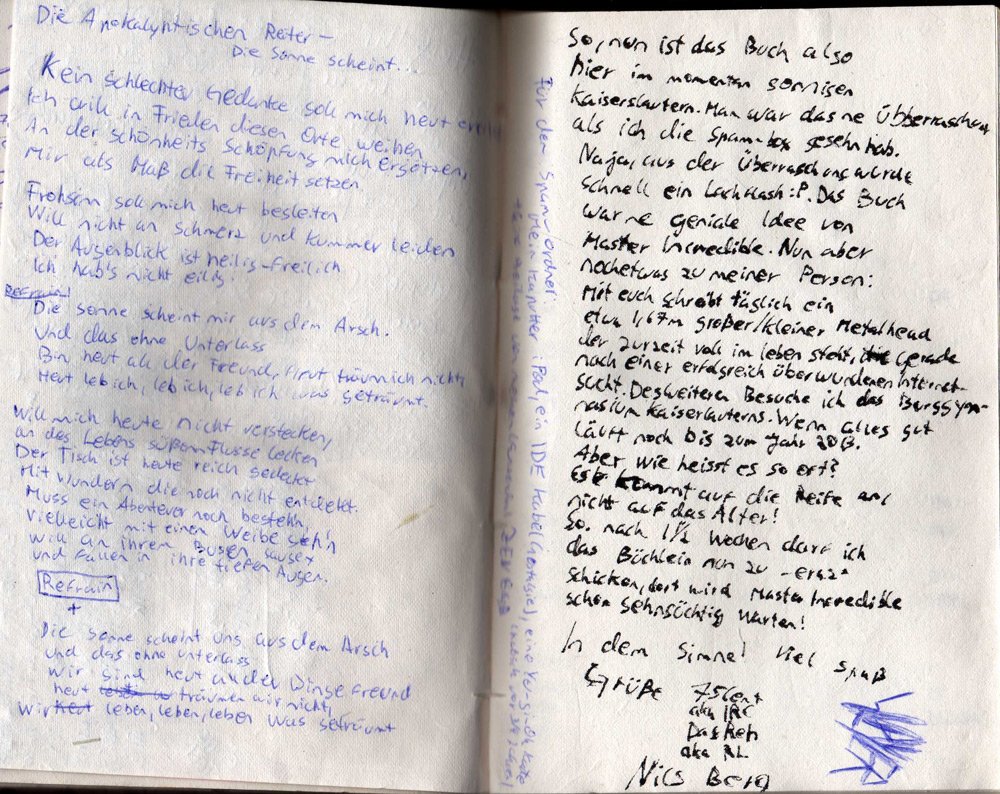 Die Apokalyptischen Reiter –
Die Sonne scheint...
Kein schlechter Gedanke soll mich heut
Ich will in Frieden diesen Orte weihen
An der schönheits Schöpfung mich ergötzen,
Mir als Maß die Freiheit setzen
Frohsinn soll mich heut begleiten
Will nicht an Schmerz und Kummer leiden
Der Augenblick ist heilig-freilich
Ich hab's nicht eilig
Refrain:
Die Sonne scheint mir aus dem Arsch.
Und das ohne Unterlass
Bin heut all der Freund, träum ich nicht,
Heut leb ich, leb ich, leb ich was geträumt.
Will mich heute nicht verstecken,
an des Lebens süßem Flusse lecken
Der Tisch ist heute reich gedeckt
Mit Wundern die noch nicht entdeckt.
Muss ein Abenteuer noch besteh'n,
Vielleicht mit einem Weibe geh'n
Will an ihrem Busen saugen
und fallen in ihre tiefen Augen.
Refrain
+
Die Sonne scheint uns aus dem Arsch
und das ohne unterlass
wir sind heut all der Dinge Freund
heut träumen wir nicht,
wir leben, leben, leben was geträumt
Für den Spamordner:
Mein kaputter iPod, ein IDE Kabel
So, nun ist das Buch also
hier im momentan sonnigen
Kaiserslautern. Man war das ne Übberraschung
als ich die Spam-box gesehn hab.
Naja, aus der Überraschung wurde
schnell ein Lachflash :P. Das Buch
war ne geniale Idee von
Master Incredible. Nun aber
noch etwas zu meiner Person:
Mit euch schreibt täglich ein
etwa 1,67m großer/kleiner Metalhead
der zurzeit voll im leben steht, gerade
nach einer erfolgreich überwundenen Internet-
sucht. Desweiteren Besuche ich das Burggym-
nasium Kaiserslauterns. Wenn alles gut
läuft noch bis zum Jahr 2013.
Aber wie heisst es so oft?
Es kommt auf die Reife an
nicht auf das Alter!
So. nach 1½ Wochen darf ich
das Büchlein nun zu
schicken, dort wird Master Incredible
schon sehnsüchtig warten!
In dem Sinne! Viel Spaß
Grüße 75Cent
aka IRC
DasReh
aka NL
Nils Berg